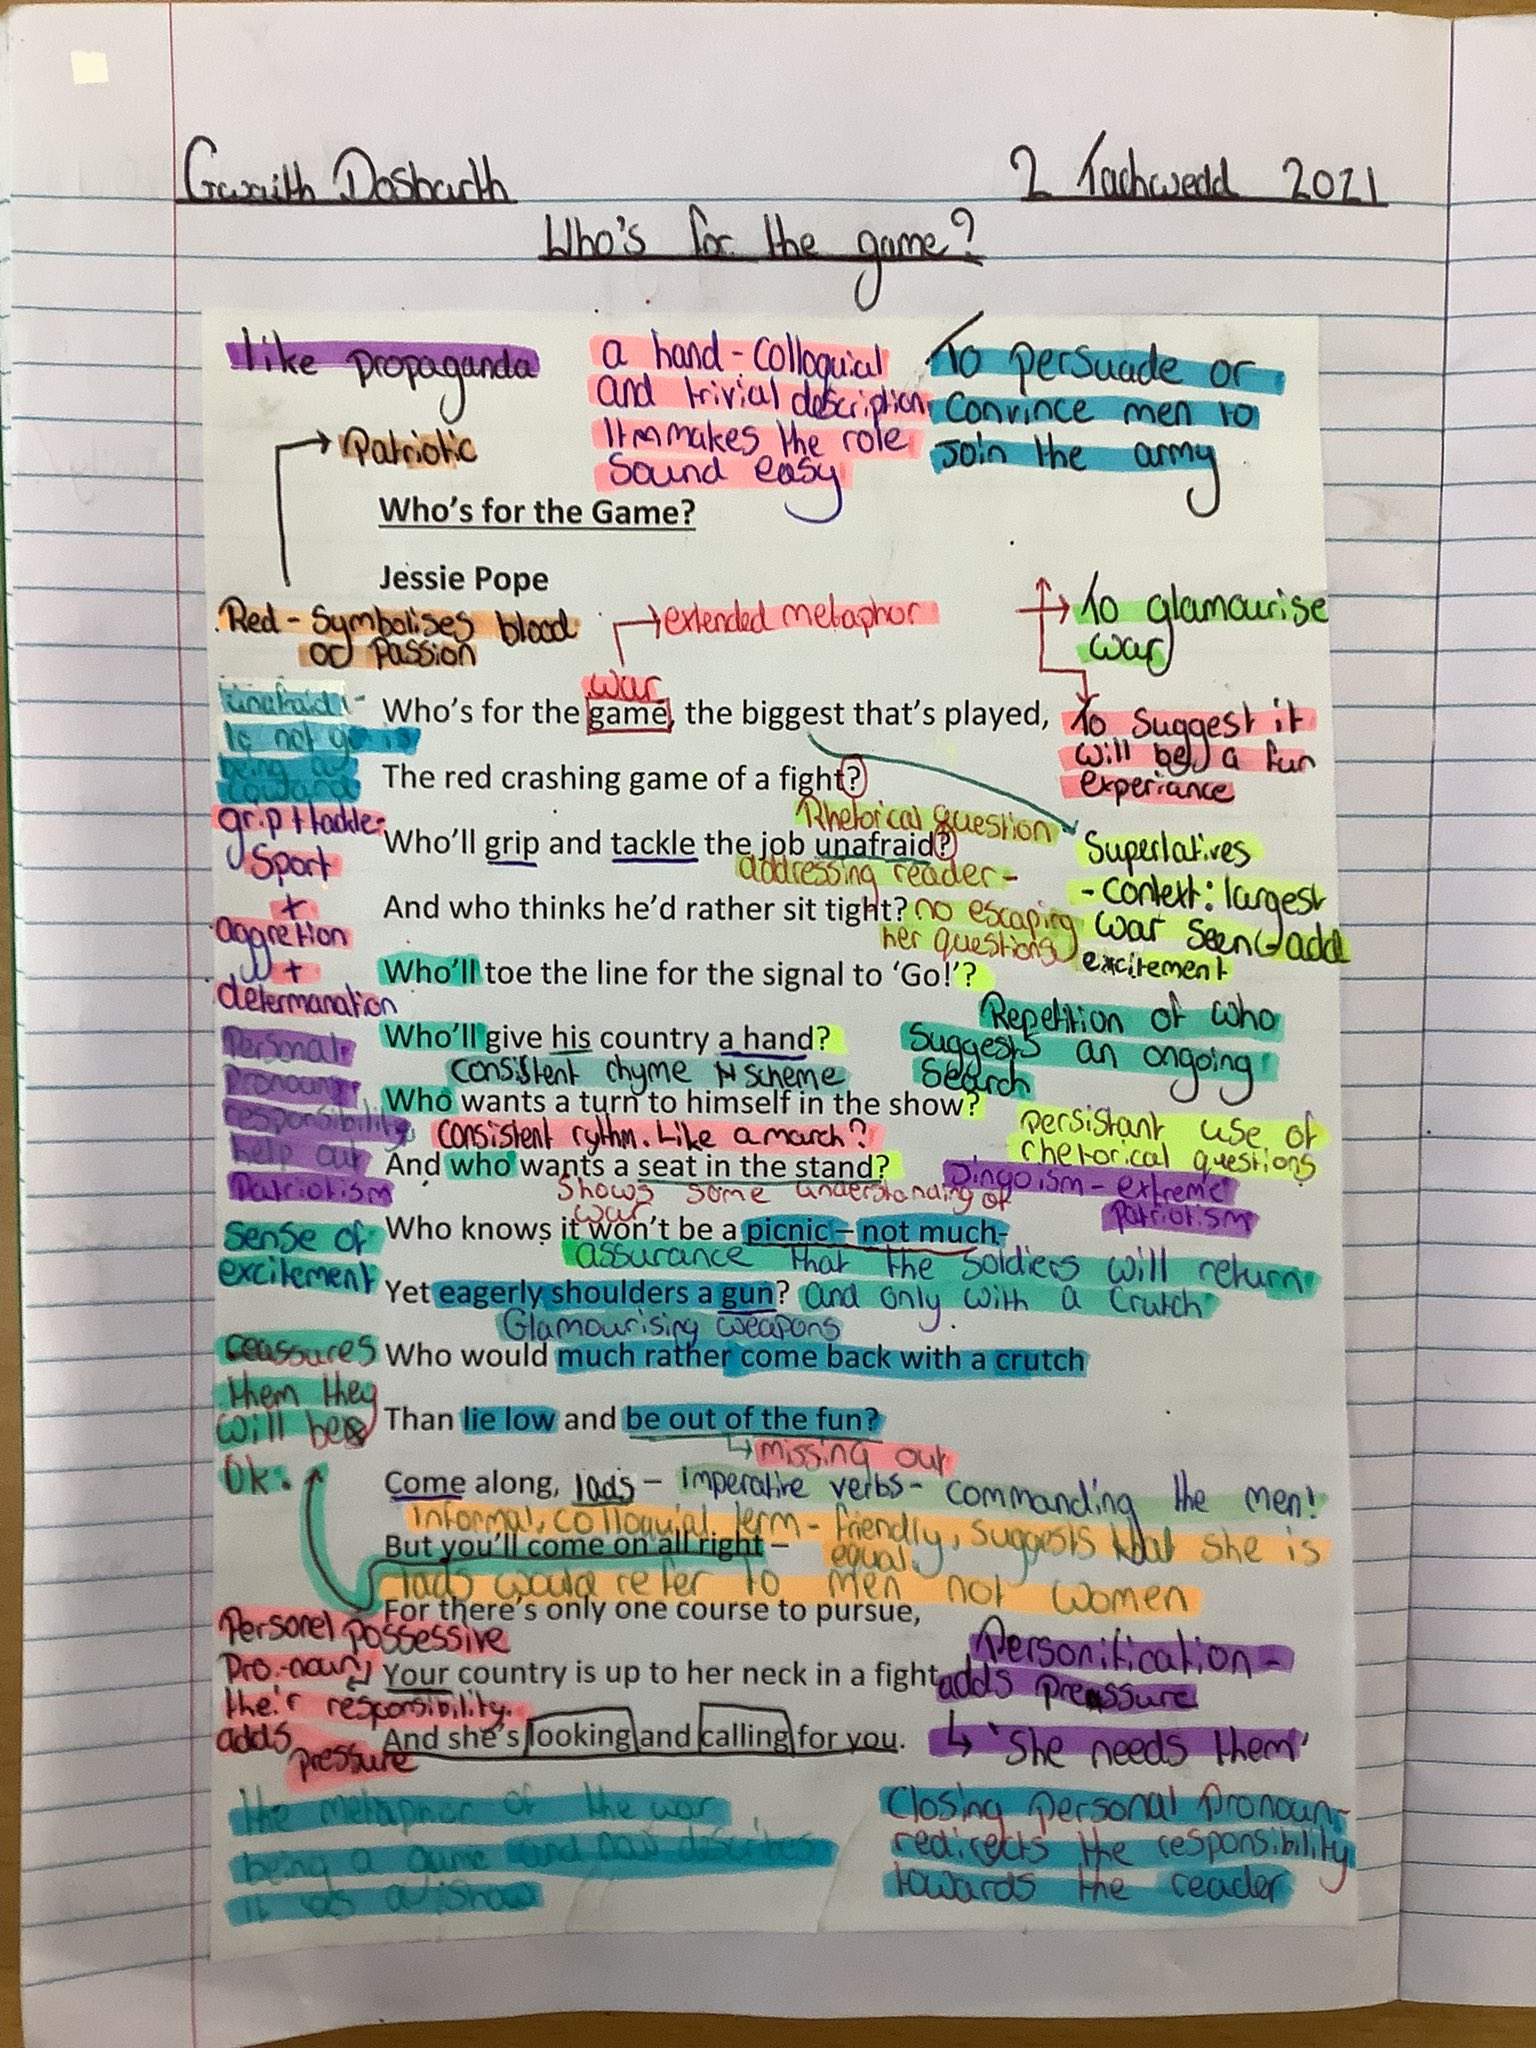 Gwaith Dosbarth
2 Tachwedd 2021
Who's for the game?
like propaganda
a hand - colloquial
and trivial description.
It makes the role
sound easy
To persuade or
convince men to
join the army
Patriotic
Who's for the Game?
Jessie Pope
Red - Symbolises blood
or passion
extended metaphor
To glamourise
war
unafraid -
To not go is
being a
coward
war
Who's for the game, the biggest that's played,
To suggest it
will be a fun
experiance
The red crashing game of a fight?
Rhetorical question
grip + tackle-
Sport
+
aggretion
+
determanation
Who'll grip and tackle the job unafraid?
addressing reader -
no escaping
her questions
Superlatives
- Context: largest
war seen add
excitement
And who thinks he'd rather sit tight?
Who'll toe the line for the signal to 'Go!'?
Repetition of who
Suggests an ongoing
Search
Personal
pronoun
responsibility
help out
Patriotism
Who'll give his country a hand?
consistent rhyme scheme
Who wants a turn to himself in the show?
consistent rythm. Like a march?
persistant use of
rhetorical questions
And who wants a seat in the stand?
Shows some understanding of
war
Jingoism - extreme
patriotism
sense of
excitement
Who knows it won't be a picnic – not much-
assurance that the soldiers will return
Yet eagerly shoulders a gun?
and only with a crutch
Glamourising weapons
reassures
them they
will be
Ok.
Who would much rather come back with a crutch
Than lie low and be out of the fun?
missing out
Come along, lads –
imperative verbs - commanding the men!
informal, colloquial term - friendly, suggests that she is
equal.
But you'll come on all right –
lads would refer to men not women
For there's only one course to pursue,
Personel possessive
pro-noun
the'r responsibility.
adds
pressure
Your country is up to her neck in a fight,
Personification -
adds pressure
And she's looking and calling for you.
↳ 'She needs them'
the metaphor of the war
being a game and now describes
it as a show
Closing personal pronoun -
redirects the responsibility
towards the reader